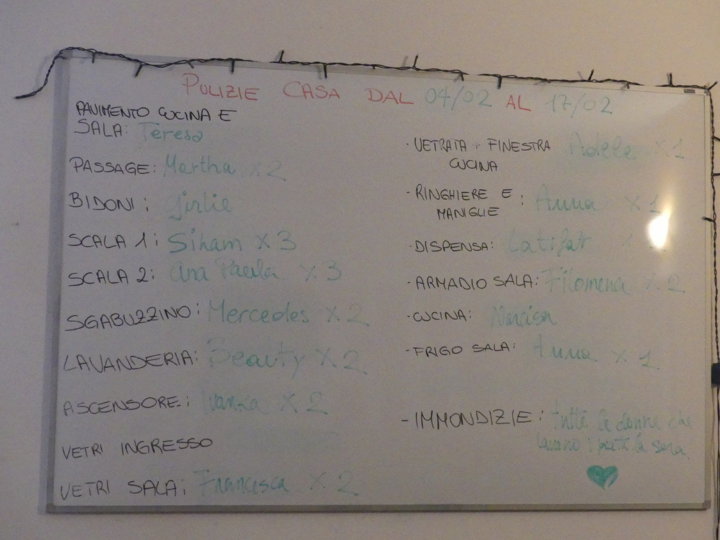 POLIZIE CASA DAL 04/02 AL 17/02
PAVIMENTO CUCINA E
SALA: Teresa
PASSAGE: Martha x 2
BIDONI: Girlie
SCALA 1: Siham x 3
SCALA 2: Ana Paula x 3
SGABUZZINO: Mercedes x 2
LAVANDERIA: Beauty x 2
ASCENSORE: Ivanka x 2
VETRI INGRESSO
VETRI SALA: Francesca x 2
· VETRATA + FINESTRA Adele x 1
CUCINA
· RINGHIERE E
MANIGLIE : Anna x 1
· DISPENSA: Latifat
· ARMADIO SALA: Filomena x 2
· CUCINA:
· FRIGO SALA: Anna x 1
- IMMONDIZIE: tutte le donne che
lavano i piatti la sera